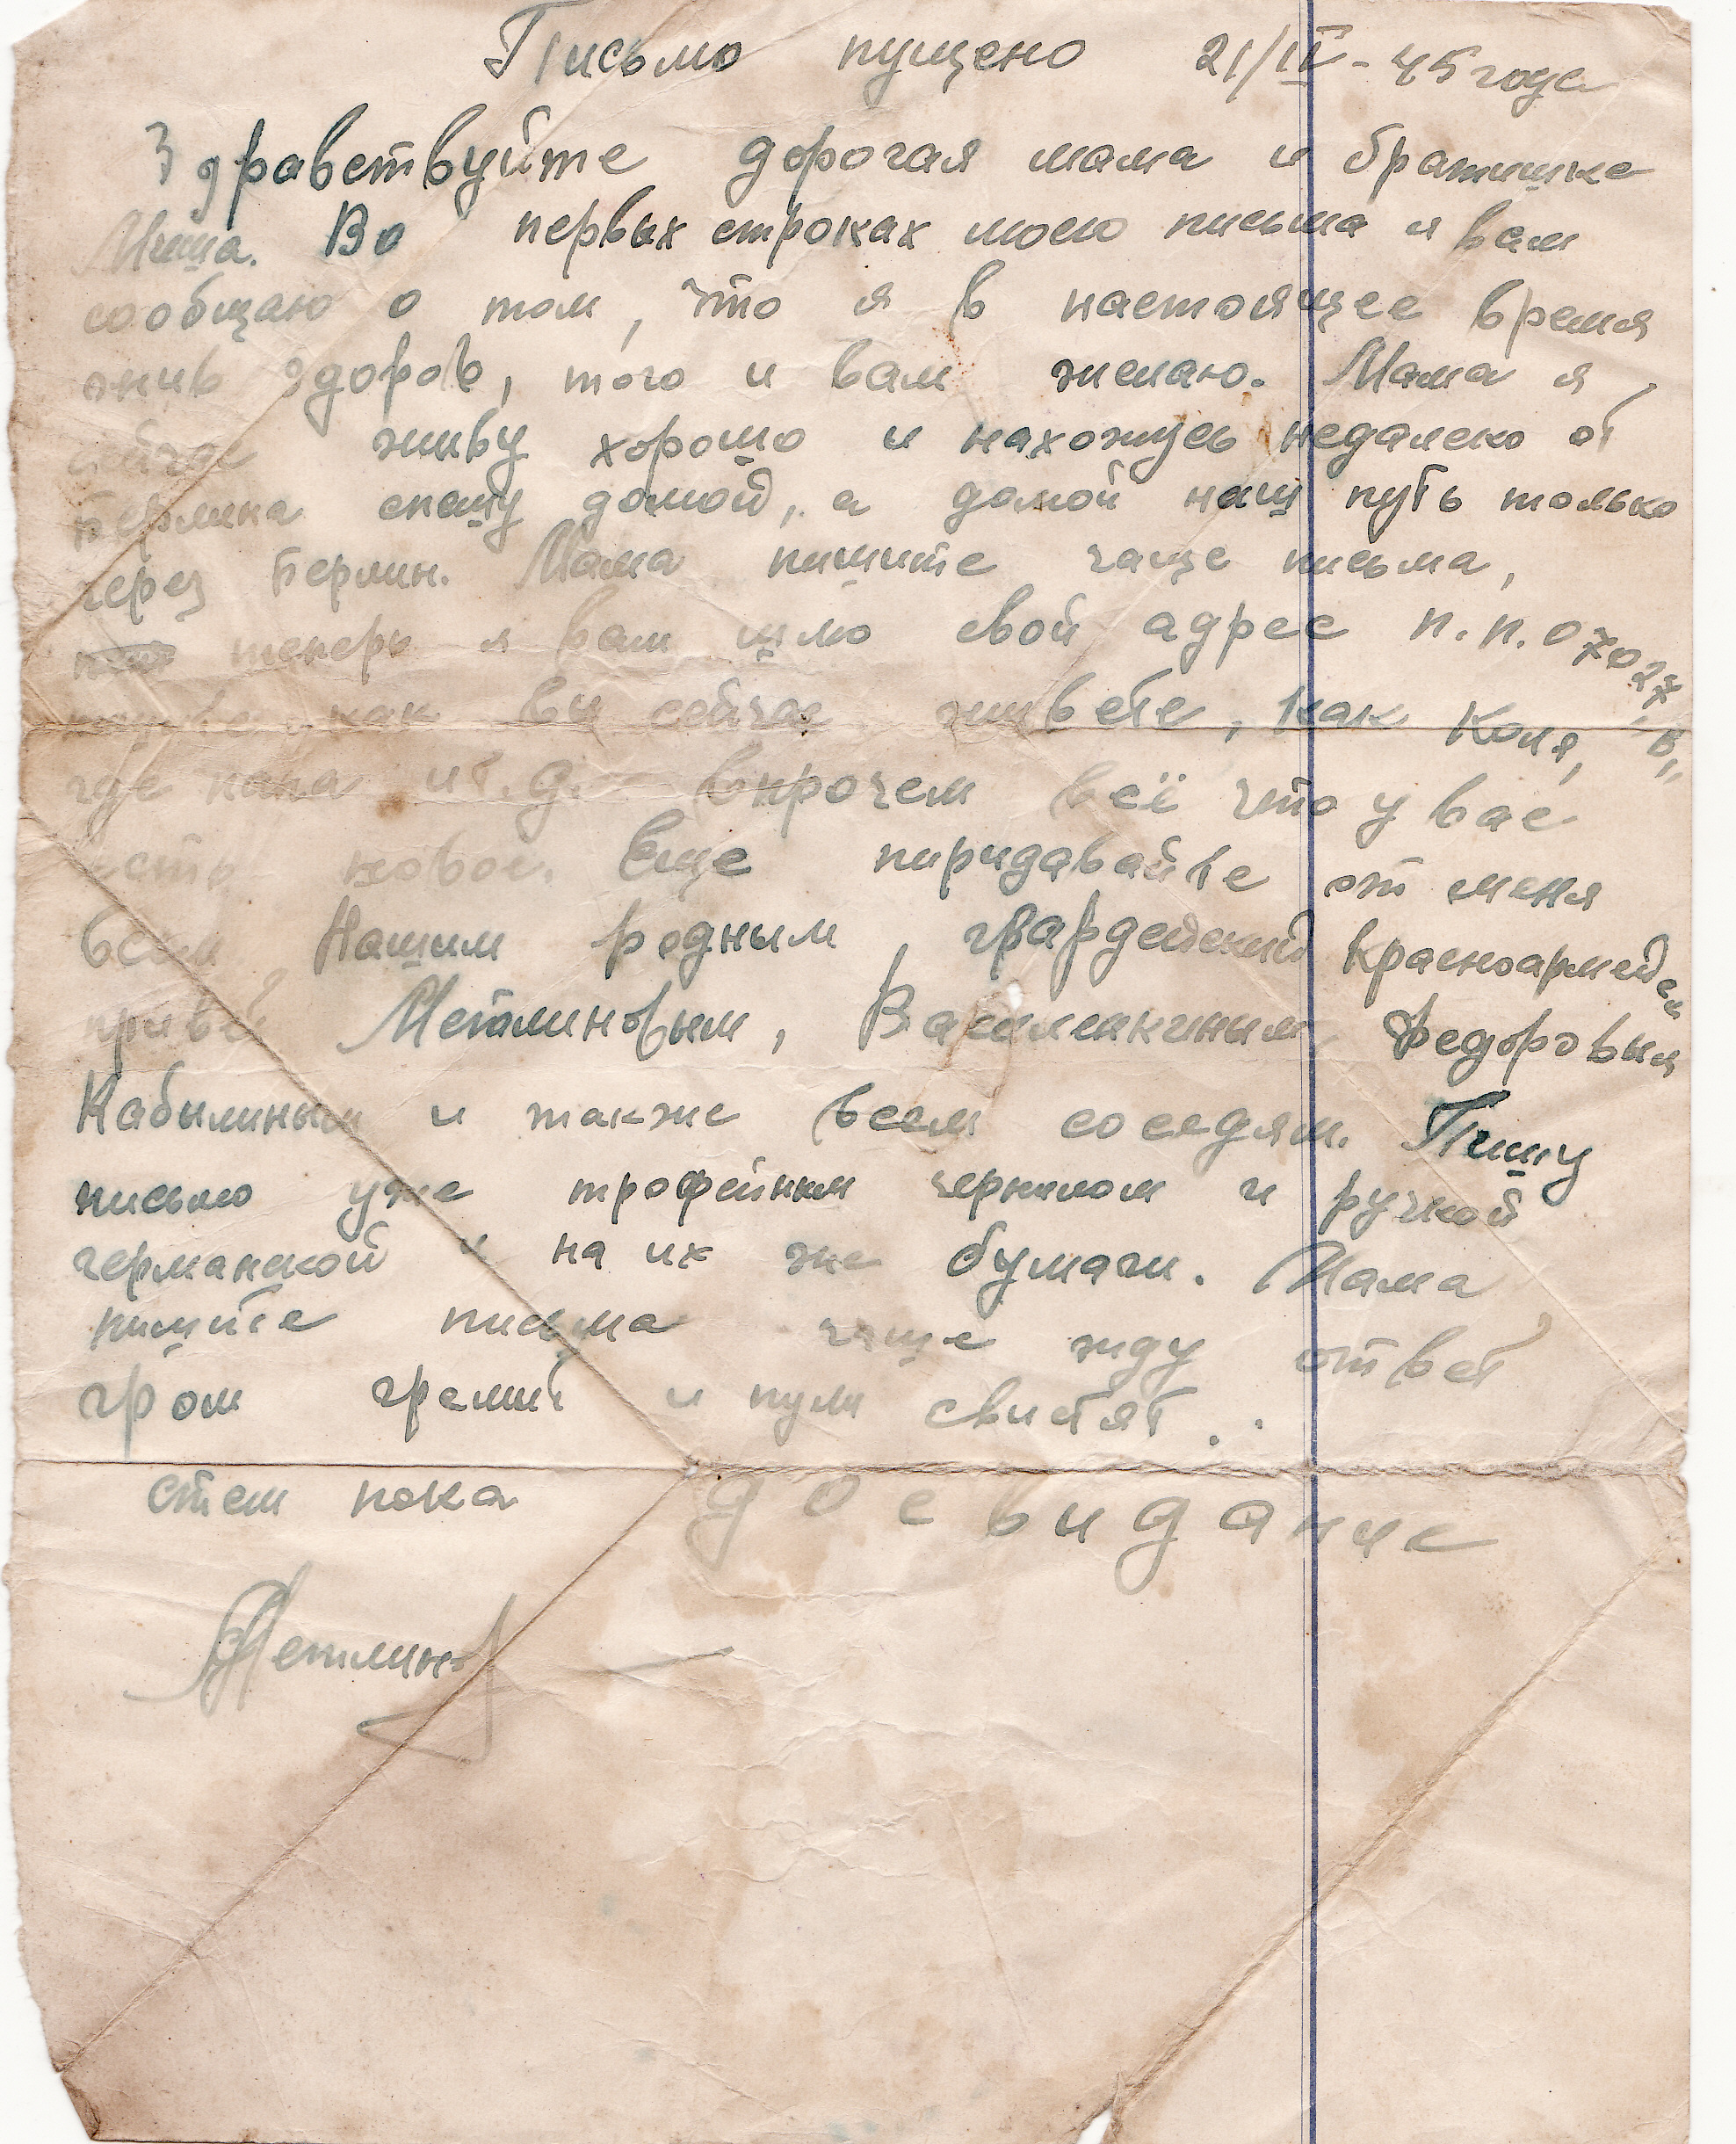 Письмо пущено 21/IV-45 года
Здравствуйте дорогая мама и братишка
Миша. Во первых строках моего письма я вам
сообщаю о том, что я в настоящее время
жив здоров, того и вам желаю. Мама я
сейчас живу хорошо и нахожусь недалеко от
Берлина спешу домой, а домой наш путь только
через Берлин. Мама пишите чаще письма,
теперь я вам шлю свой адрес п.п. 07027 "В"
как вы сейчас живете, как Коля,
где папа и т.д. впрочем всё что у вас
есть новое. Еще пиридавайте от меня
всем, Нашим родным, гвардейский красноармейский
привет Метлиновым, Василенкиным, Федоровым
Кабылиным и также всем соседям. Пишу
письмо уже трофейным чернилом и ручкой
германской и на их же бумаги. Мама
пишите письма чаще жду ответ
гром гремит и пули свистят..
стем пока досвидание
Метлинов